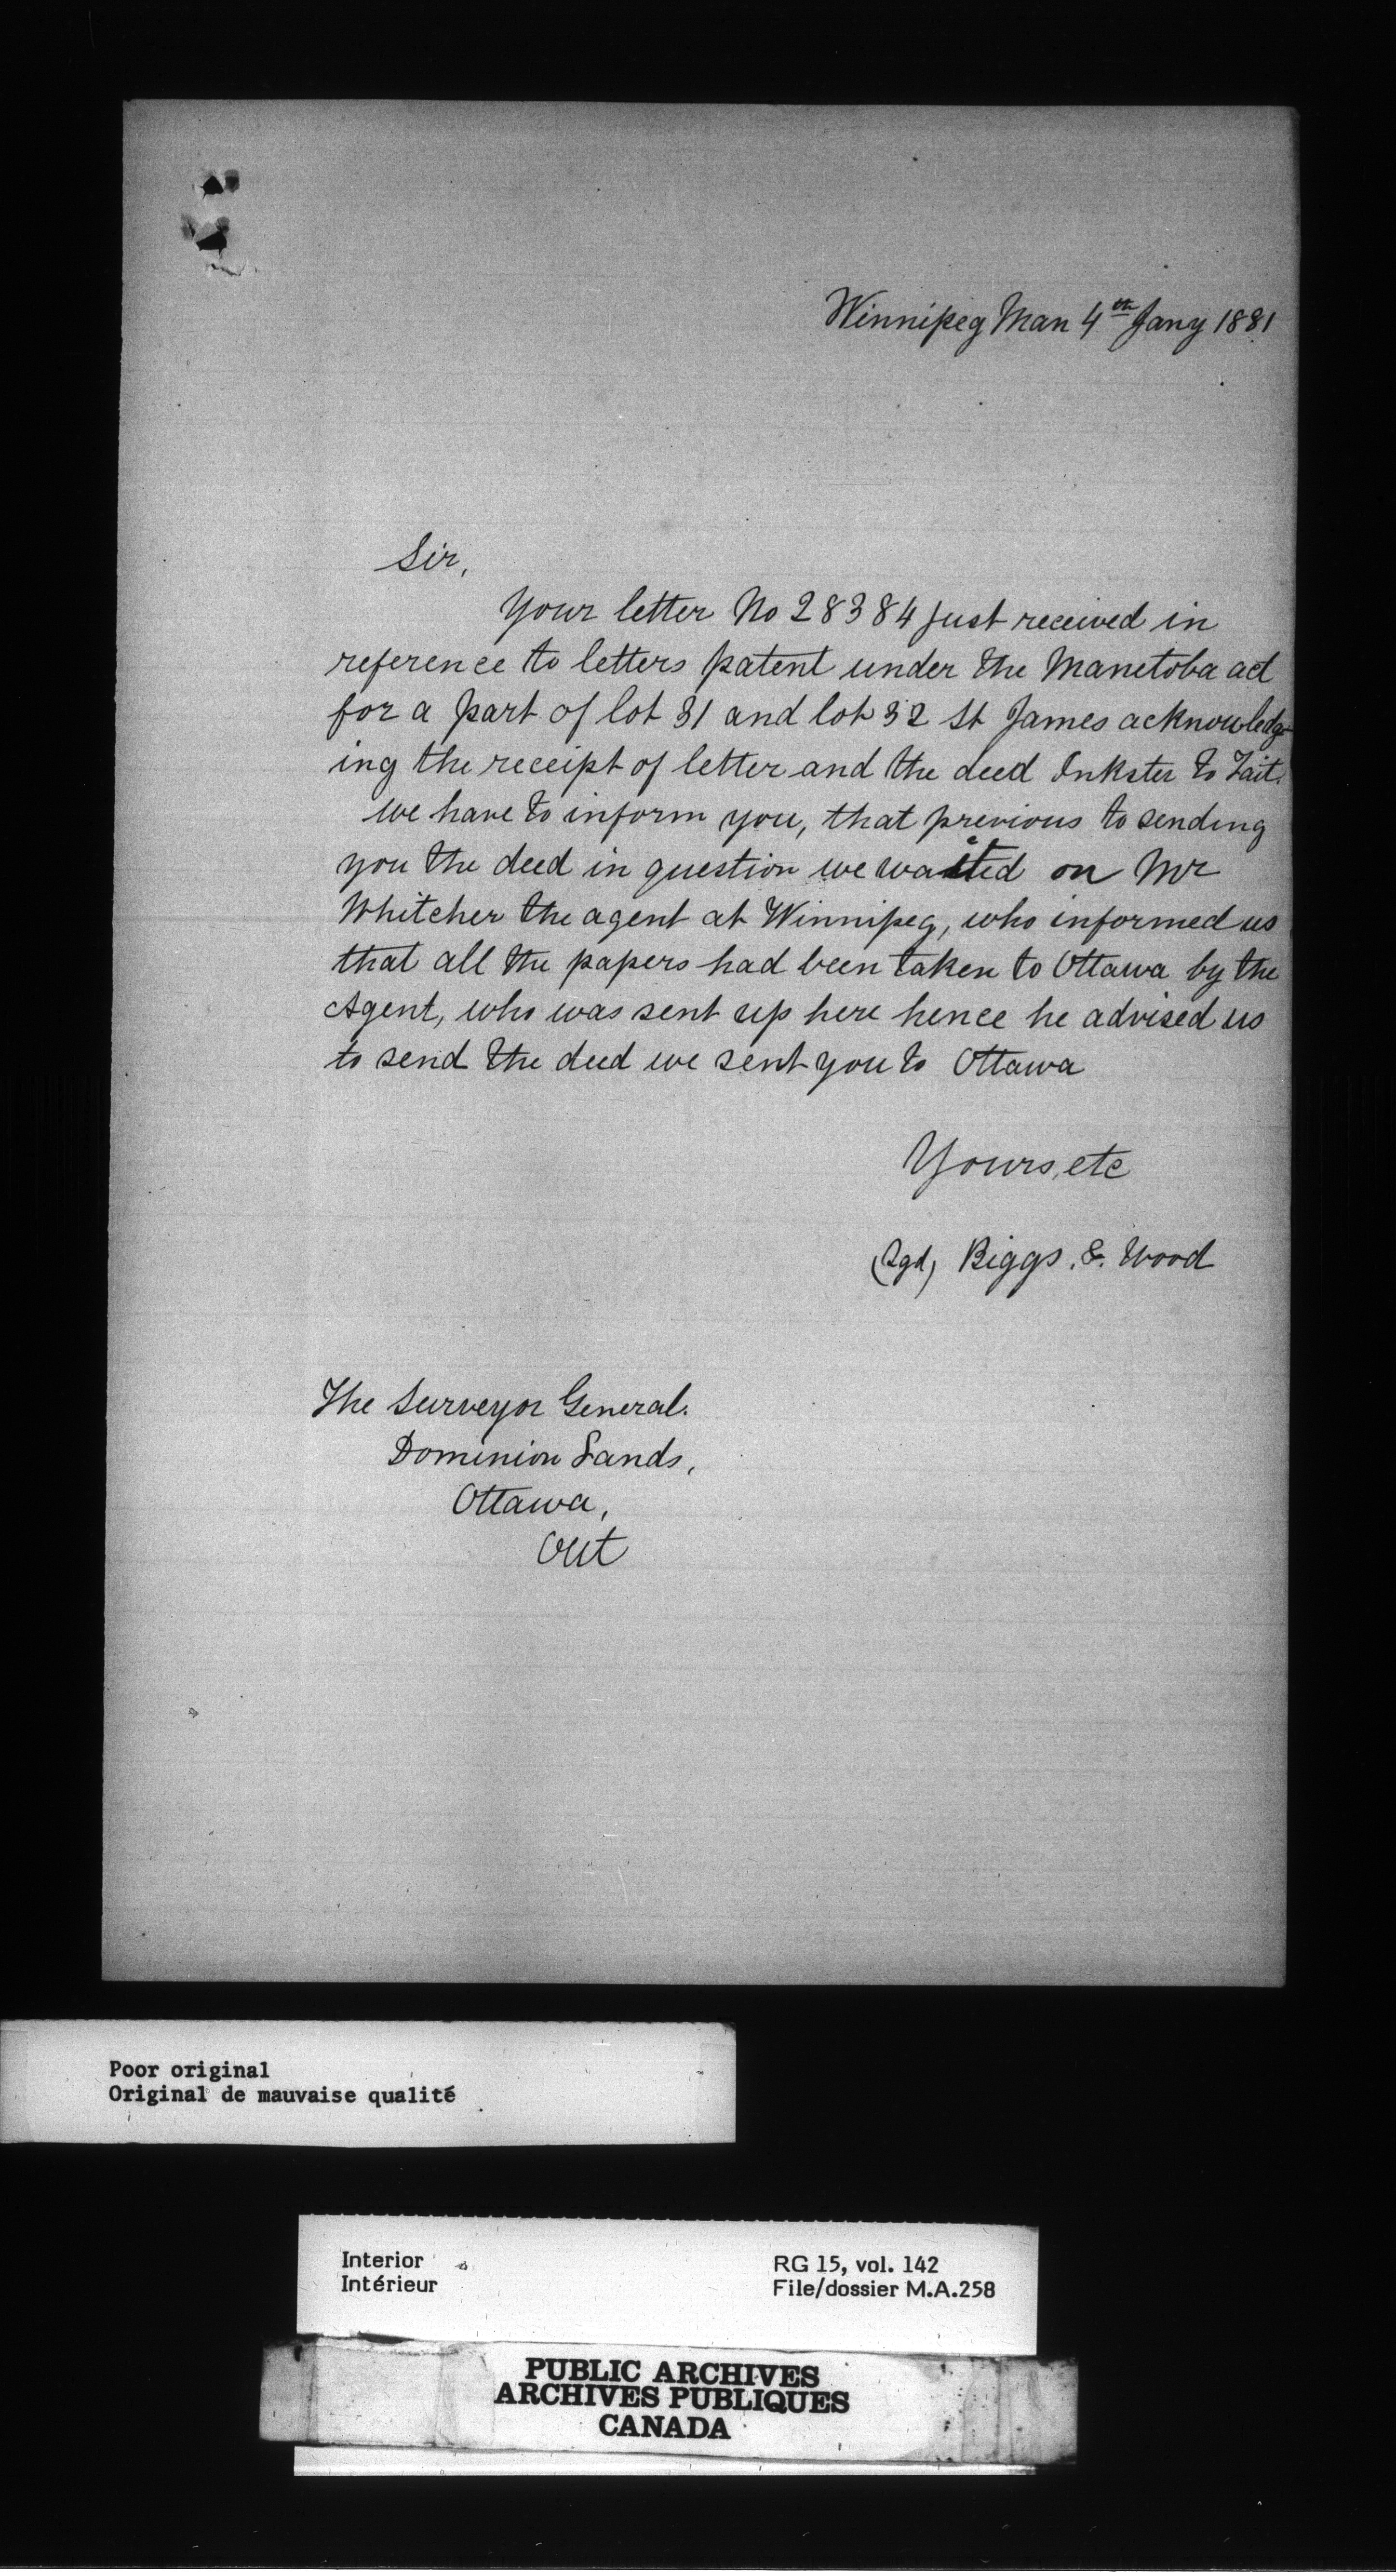 Winnipeg Man 4th Jany 1881
Sir,
Your letter No 28384 just received in
reference to letters patent under the Manetoba act
for a part of lot 31 and lot 32 St James acknowledg-
ing the receipt of letter and the deed Inkster to Tait.
we have to inform you, that previous to sending
you the deed in question we waited on Mr
Whitcher the agent at Winnipeg, who informed us
that all the papers had been taken to Ottawa by the
Agent, who was sent up here hence he advised us
to send the deed we sent you to Ottawa
Yours, etc
(Sgd) Biggs. &. Wood
The Surveyor General.
Dominion Lands,
Ottawa,
Ont
Poor original
Original de mauvaise qualité
Interior
Intérieur
RG 15, vol. 142
File/dossier M.A.258
PUBLIC ARCHIVES
ARCHIVES PUBLIQUES
CANADA